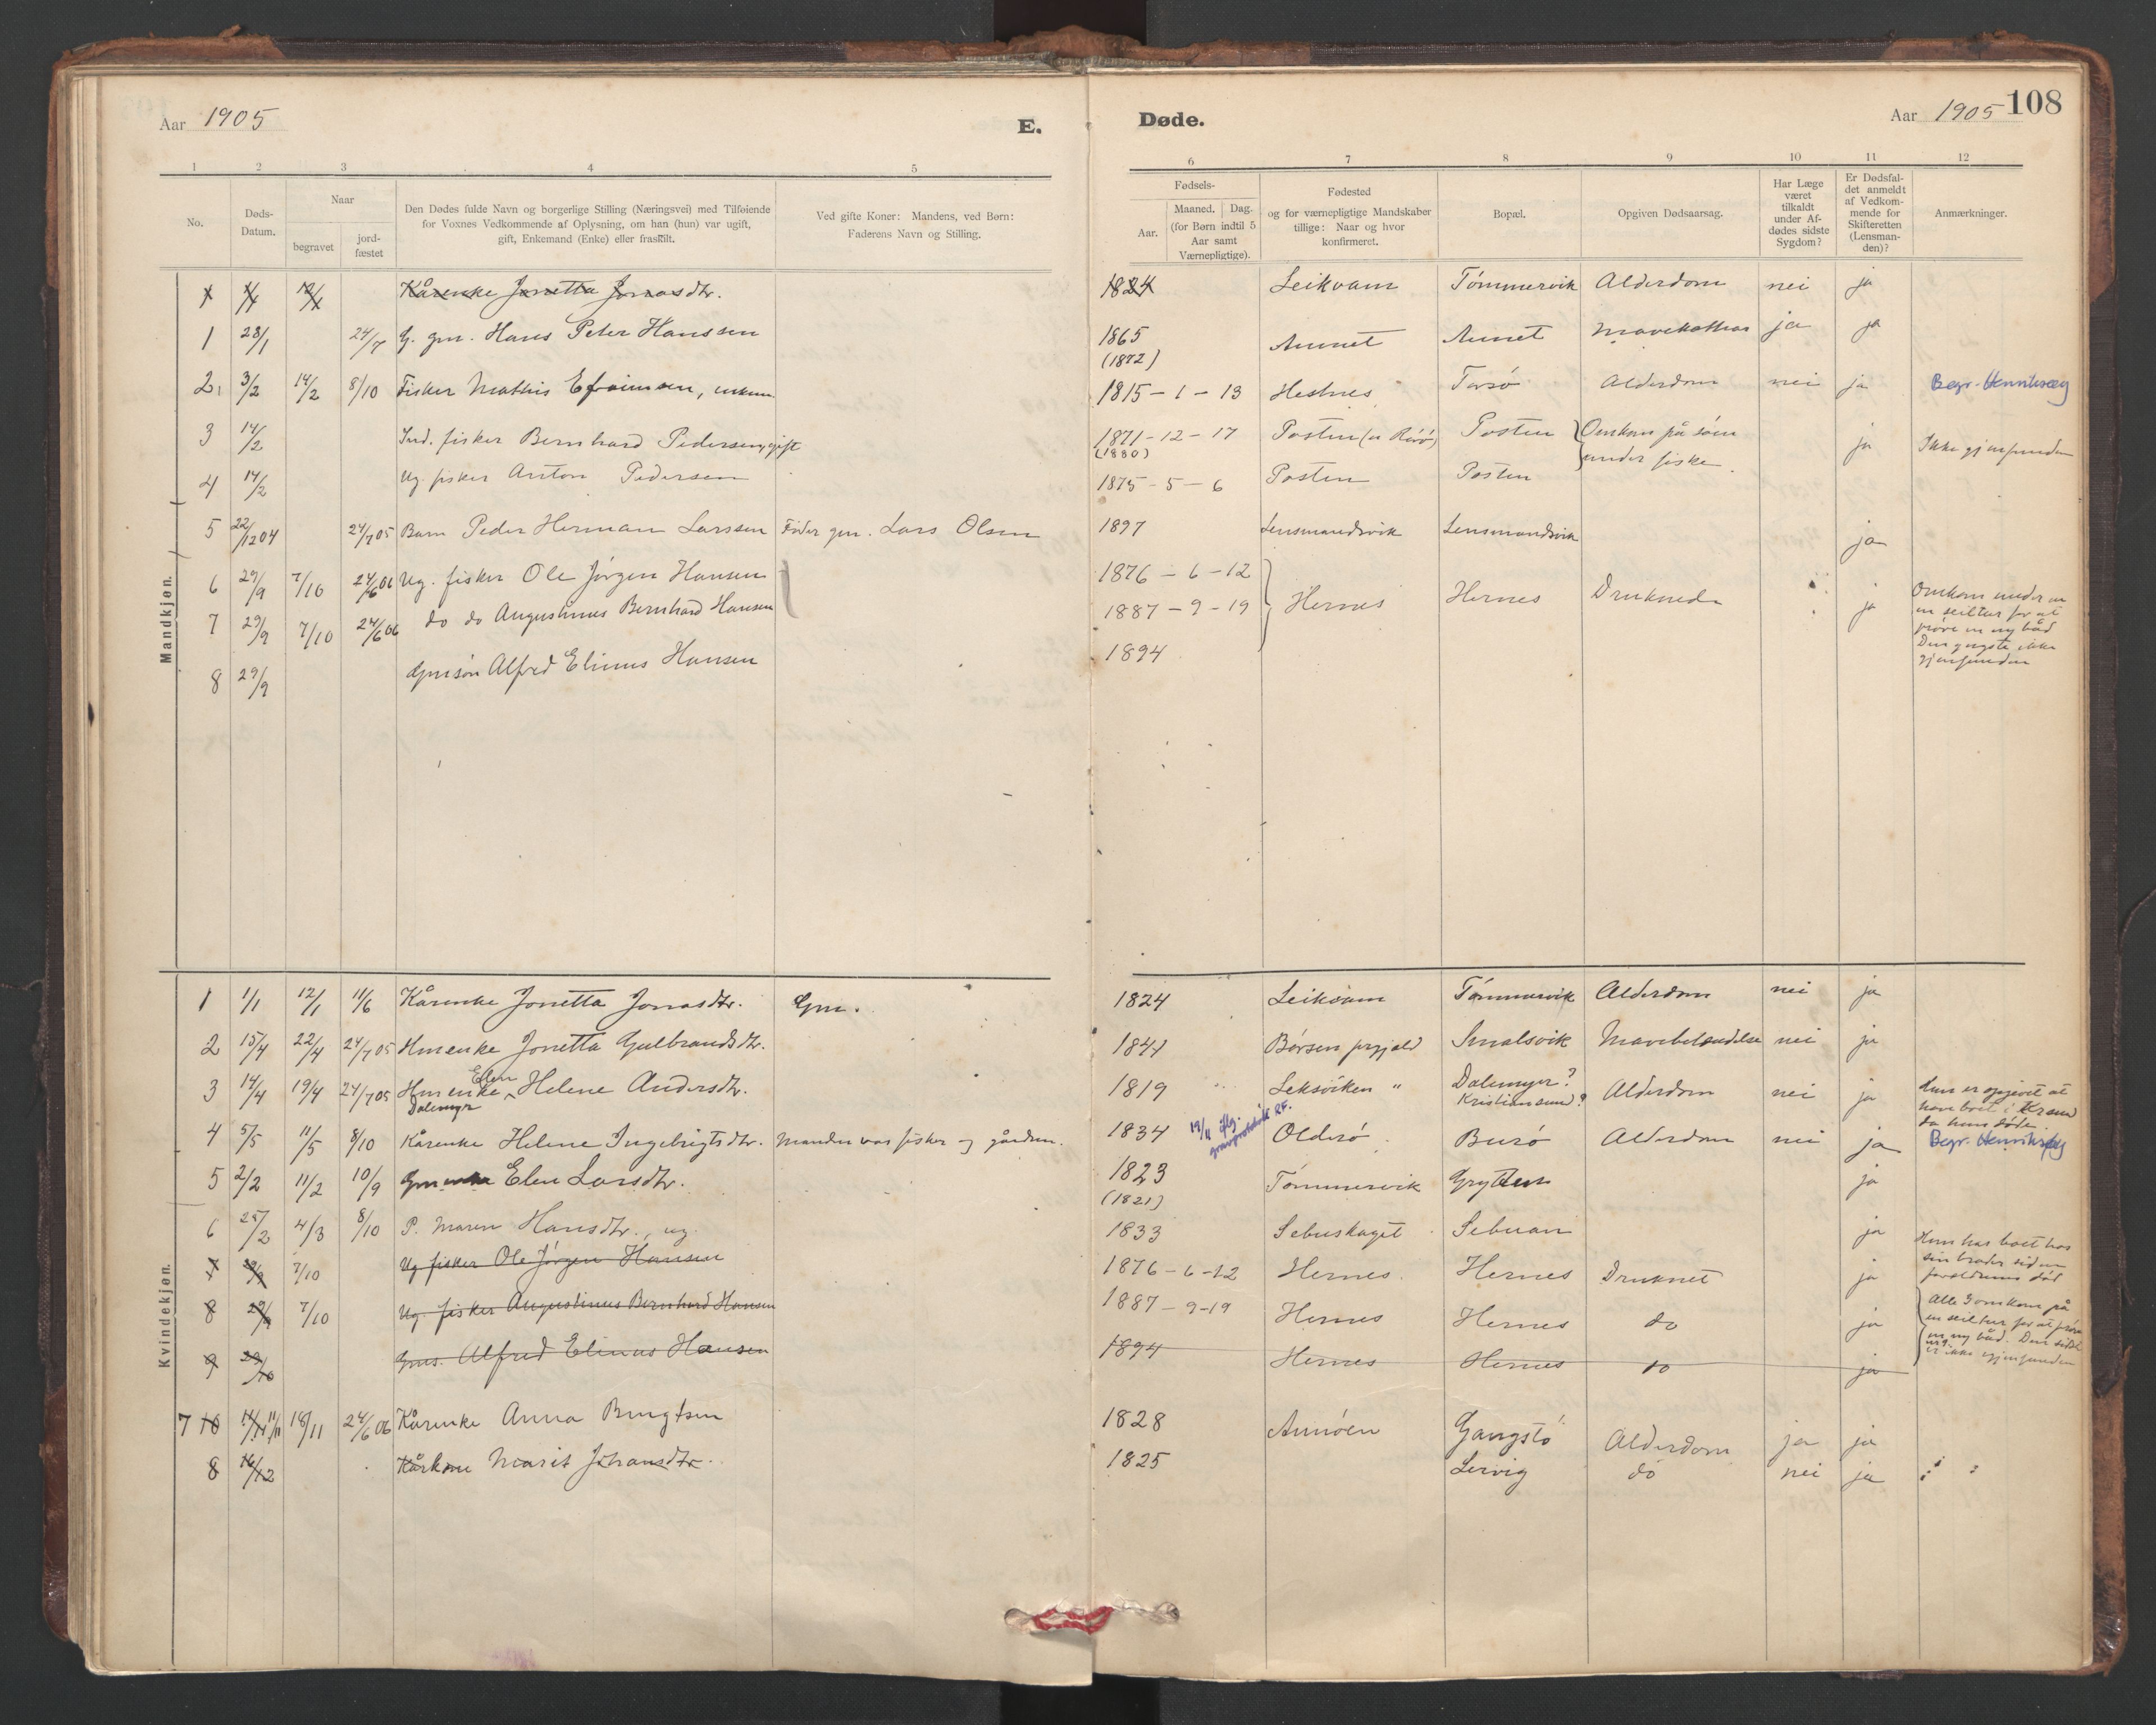 Aar 1905 E.
Døde. Aar 1905 108
1 2 3 4 5
6 7 8 9 10 11 12
No.
Døds-
Datum.
Naar
begravet
jord-
fæstet
Den Dødes fulde Navn og borgerlige Stilling (Næringsvei) med Tilføiende
for Voxnes Vedkommende af Oplysning, om han (hun) var ugift,
gift, Enkemand (Enke) eller fraskilt.
Ved gifte Koner: Mandens, ved Børn:
Faderens Navn og Stilling.
Fødsels-
Aar.
Maaned. Dag.
(for Børn indtil 5
Aar samt
Værnepligtige).
Fødested
og for værnepligtige Mandskaber
tillige: Naar og hvor
konfirmeret.
Bopæl.
Opgiven Dødsaarsag.
Har Læge
været
tilkaldt
under Af-
dødes sidste
Sygdom?
Er Dødsfal-
det anmeldt
af Vedkom-
mende for
Skifteretten
(Lensman-
den)?
Anmærkninger.
Mandkjøn.
1 1/1 12/1 Kårenke Jonetta Jonasdtr. 1824 Leikvam Tømmervik Alderdom nei ja
1 28/1 24/7 G. gm. Hans Peter Hanssen 1865 Aunet Aunet ja ja
(1872)
2 3/2 14/2 8/10 Fisker Mathis Efraimsen, enkem 1815-1-13 Hestnes Alderdom nei ja Begr.
3 14/2 Ind. fisker Bernhard Pedersen, gift 1871-12-17 Posten Posten Omkom på søen ja Ikke gjenfunden
(1880) under fiske.
4 14/2 Ug. fisker Anton Pedersen 1875-5-6 Posten Posten
5 22/12 04 24/7 05 Barn Peder Herman Larssen Fader gm. Lars Olsen 1897 Lensmandsvik Lensmandsvik ja
6 29/9 7/10 24/6 06 Ug. fisker Ole Jørgen Hansen 1876-6-12 Hernes Hernes Druknede ja
7 29/9 7/10 24/6 06 do do Augustinus Bernhard Hansen 1887-9-19
8 29/9 Gmsøn Alfred Elinus Hansen 1894
Omkom under en
en seiltur for at
prøve en ny båd
Den yngste ikke
gjenfunden
Kvindekjøn.
1 1/1 12/1 11/6 Kårenke Jonetta Jonasdtr. Gm. 1824 Leikvam Tømmervik Alderdom nei ja
2 15/4 22/4 24/7 05 Hmenke Jonetta Gulbrandsdtr. 1841 Børsen prgjeld Smalsvik Mavebetændelse nei ja
3 14/4 19/4 24/7 05 Hmenke Elen Helene Andersdtr. 1819 Leksviken " Dalemyr? Alderdom nei ja
Dalemyr Kristiansund?
Hun er opgivet at
have boet i Krsund
da hun døde.
4 5/5 11/5 8/10 Kårenke Helene Ingebrigtsdtr. Manden var fisker og gårdm. 1834 19/11 iflg. gravprotokoll RF. Olderø Burø Alderdom nei ja Begr.
5 2/2 11/2 10/9 Gmenke Elen Larsdtr. 1823 Tømmervik Grytten ja
(1821)
6 25/2 4/3 8/10 P. Maren Hansdtr., ug. 1833 Sebuskaget Sebuan ja
Hun har boet hos
sin broder siden
forældrenes død
7 29/9 7/10 Ug fisker Ole Jørgen Hansen 1876-6-12 Hernes Hernes Druknet ja
8 29/9 7/10 Ug. fisker Augustinus Bernhard Hansen 1887-9-19 Hernes Hernes do ja
9 29/10 Gms. Alfred Elinus Hansen 1894 Hernes Hernes do ja
Alle 3 omkom på
en seiltur for at prøve
en ny båd. Den sidste
er ikke gjenfunden
7 10 11/11 18/11 24/6 06 Kårenke Anna Bengtsen 1828 Annøen Gangstø Alderdom ja ja
8 16/12 Kårkone Marit Johansdtr. 1825 Lervig do nei ja